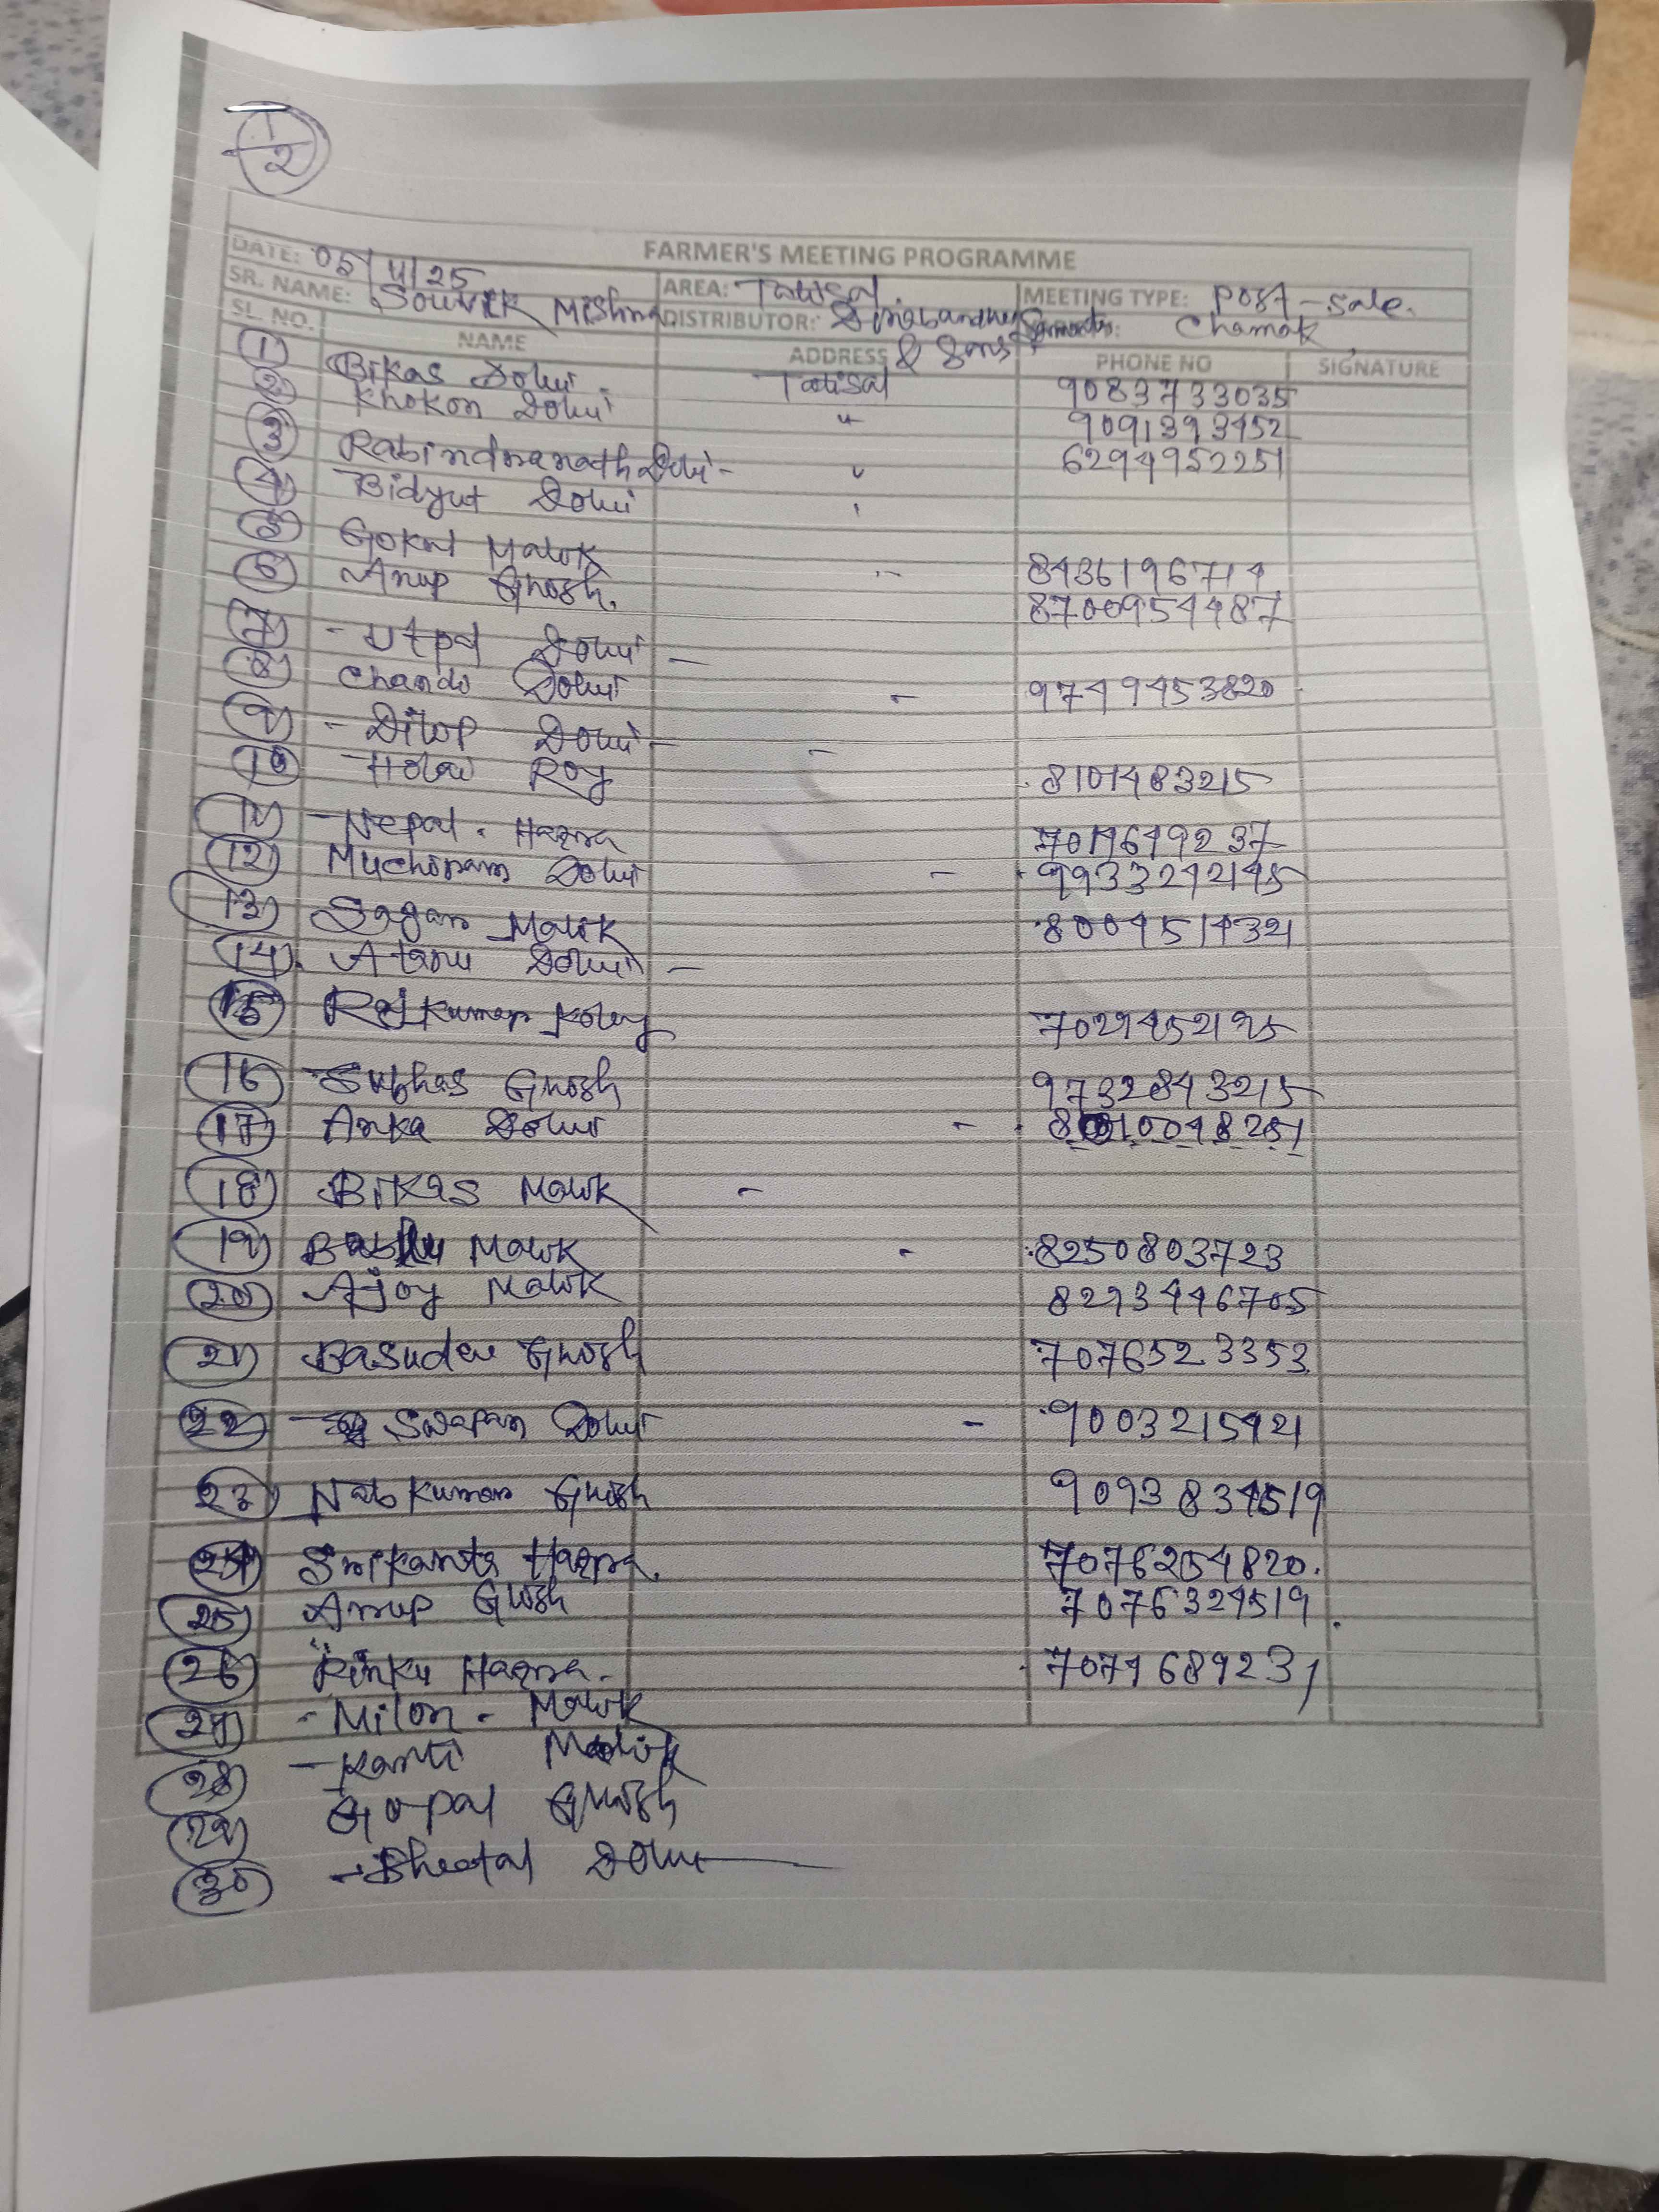 1/2
FARMER'S MEETING PROGRAMME
DATE: 05/11/25 AREA: Tatisal. MEETING TYPE: Post-sale.
SR. NAME: Souvik Mishra DISTRIBUTOR: Dinabandhu Samanta & Sons Chamak
SL. NO. NAME ADDRESS PHONE NO SIGNATURE
1) Bikas Dolui. Tatisal 9083733035
2) Khokon Dolui " 9091393452
3) Rabindranath Dolui - " 6294952251
4) Bidyut Dolui
5) Gokul Malik 8436196714
6) Anup Ghosh. 8700954487
7) - Utpal Dolui -
8) Chandi Dolui - 9749453820
9) - Dilip Dolui - -
10 Roy 8101483215
11) - Nepal. Hazra
12) Muchiram Dolui - 9933242145
13) Sagar Malik 8004514321
14). Dolui -
15 Rajkumar Koley 7029452195
16 Subhas Ghosh 9732843215
17 Dolui -
18) Bikas Malik -
19) Bablu Malik - 8250803723
20) Ajoy Malik 8293446705
21) Basudev Ghosh 7076523353
22) Swapan Dolui - 9003215421
23) Nabkumar Ghosh 9093834519
24) Srikanta Hazra. 7076254820.
25) Anup Ghosh 7076324519
26) Rinku Hazra. 7074689231
27) - Milon - Malik
28) - Kanti Malik
29) Gopal Ghosh
30) - Sheetal Dolui